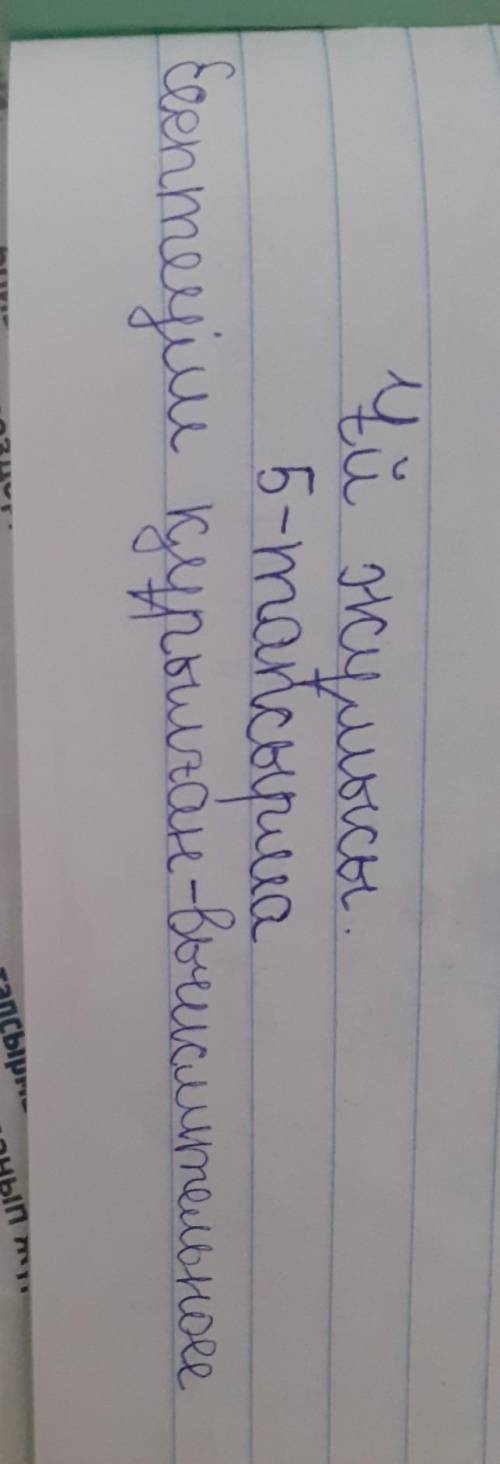 Үй жұмысы.
5-тапсырма
Есептеуіш құрылған-вычислительное